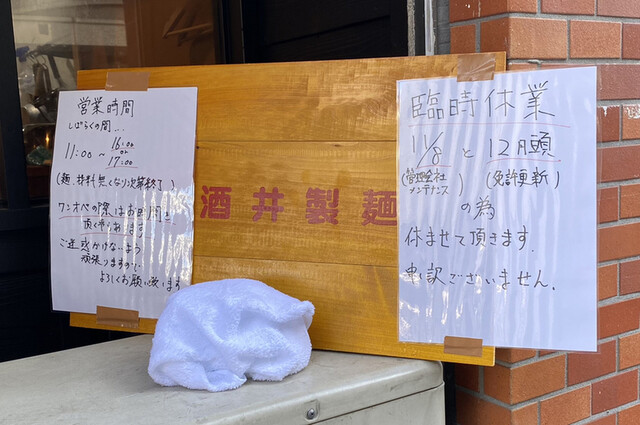 営業時間
しばらくの間...
11:00〜16:00
or
17:00
(麺、材料無くなり次第終了)
ワンオペの際はお時間を
頂く形なります
ご迷惑かけないよう
頑張りますので
よろしくお願い致します
酒井製麺
臨時休業
11/8と12月頭
(管理会社
メンテナンス)
(免許更新)
の為
休ませて頂きます.
申し訳ございません.